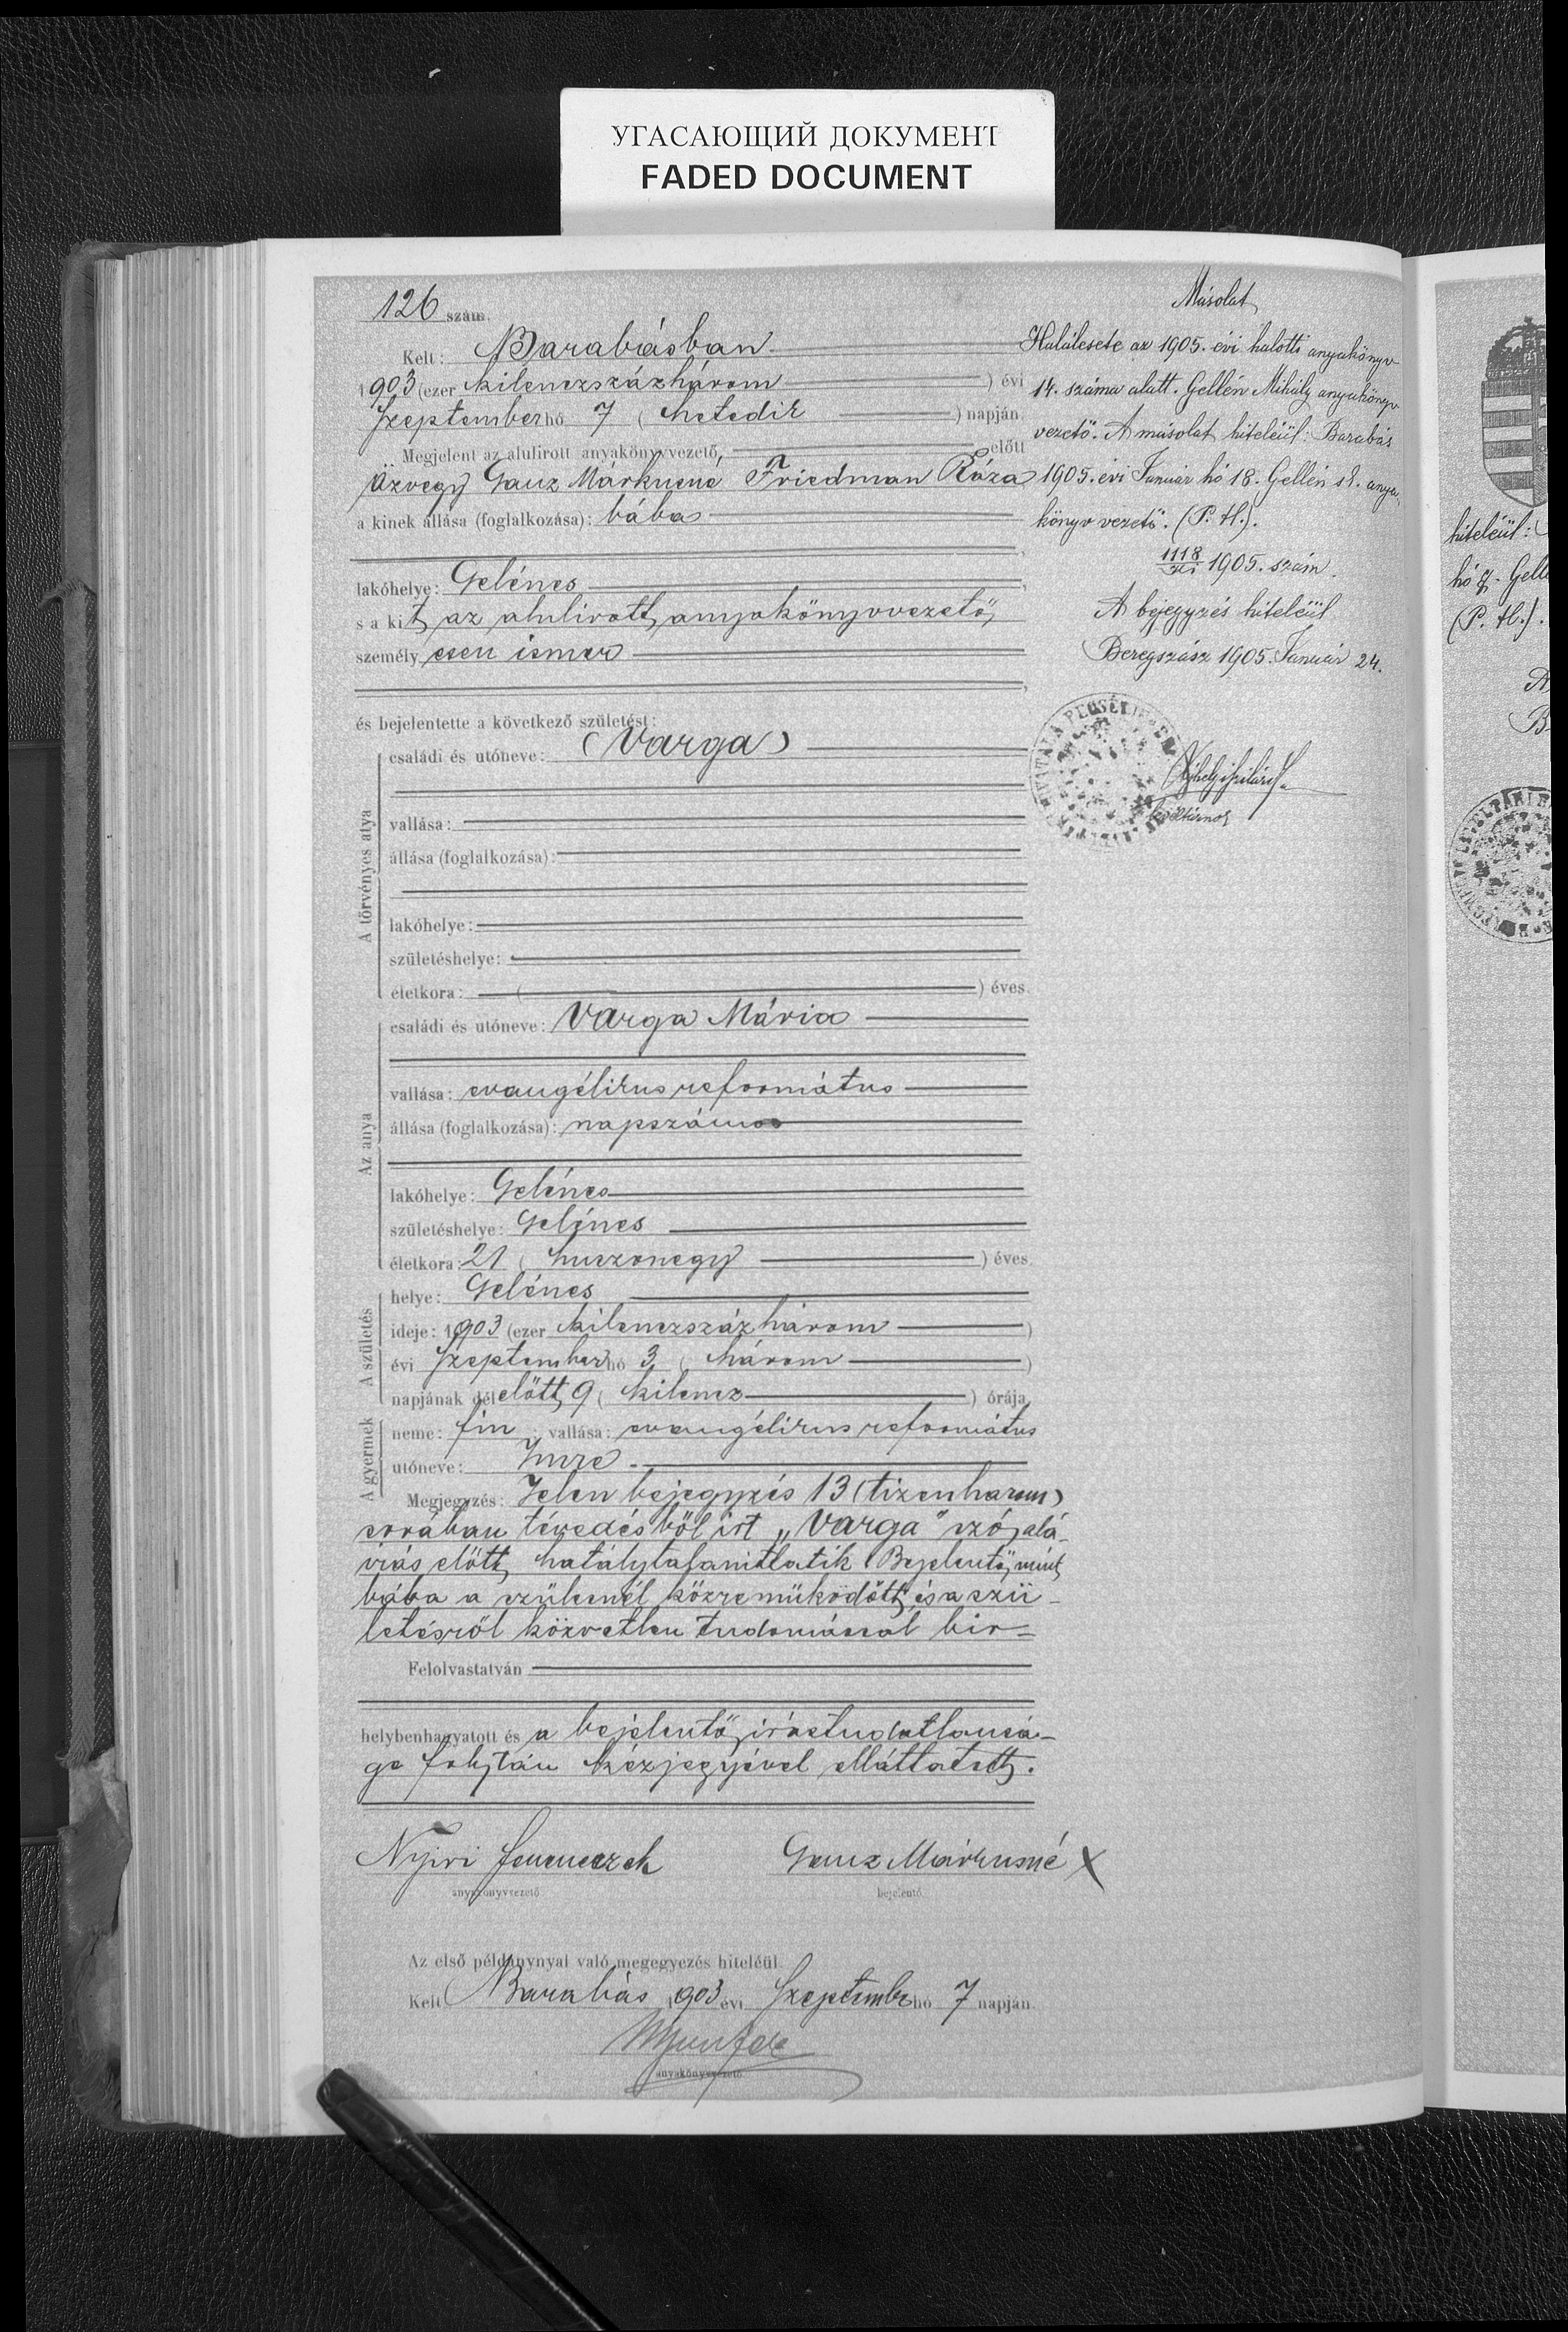 УГАСАЮЩИЙ ДОКУМЕНТ
FADED DOCUMENT
126 szám.
Kelt: Barabásban
1903 (ezer kilenczszázhárom ) évi
Szeptember hó 7 ( hetedik ) napján.
Megjelent az alulirott anyakönyvvezető előtt
özvegy Gauz Márkusné Friedman Róza
a kinek állása (foglalkozása): bába
lakóhelye: Gelénes
s a kit az alulirott anyakönyvvezető
személyesen ismer
és bejelentette a következő születést:
A törvényes atya
családi és utóneve: (Varga)
vallása:
állása (foglalkozása):
lakóhelye:
születéshelye:
életkora: ( ) éves.
Az anya
családi és utóneve: Varga Mária
vallása: evangélikus református
állása (foglalkozása): napszámos
lakóhelye: Gelénes
születéshelye: Gelénes
életkora: 21 ( huszonegy ) éves.
A születés
helye: Gelénes
ideje: 1903 (ezer kilenczszázhárom )
évi Szeptember hó 3 ( három )
napjának délelőtt 9 ( kilencz ) órája.
A gyermek
neme: fiu ; vallása: evangélikus református
utóneve: Imre
Megjegyzés: Jelen bejegyzés 13 (tizenhárom)
sorában tévedésből irt „Varga" szó, alá-
irás előtt, hatálytalanittatik Bejelentő, mint
bába a szülésnél közreműködött, és a szü-
letésről közvetlen tudomással bir=
Felolvastatván
helybenhagyatott és a bejelentő, irástudatlansá-
ga folytán kézjegyével elláttatott.
Nyiri Ferenczek
anyakönyvvezető
Gauz Márkusné X
bejelentő.
Az első példánynyal való megegyezés hiteléül.
Kelt Barabás 1903 évi Szeptember hó 7 napján.
anyakönyvvezető
Másolat
Halálesete az 1905. évi halotti anyakönyv
14. száma alatt. Gellén Mihály anyakönyv
vezető. A másolat hiteléül: Barabás
1905. évi Január hó 18. Gellén sk. anya
könyv vezető. (P. H.).
1118 1905. szám.
A bejegyzés hiteléül
Beregszász 1905. Január 24.
hiteléül:
hó
(P. H.).